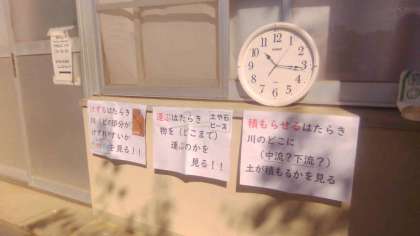 けずるはたらき
川(どの部分が
けずれやすいか
を見る!!
運ぶはたらき
土や石
ビーズ
物を(どこまで)
運ぶのかを
見る!!
積もらせるはたらき
川のどこに
(中流?下流?)
土が積もるかを見る
12
1
2
3
4
5
6
7
8
9
10
11